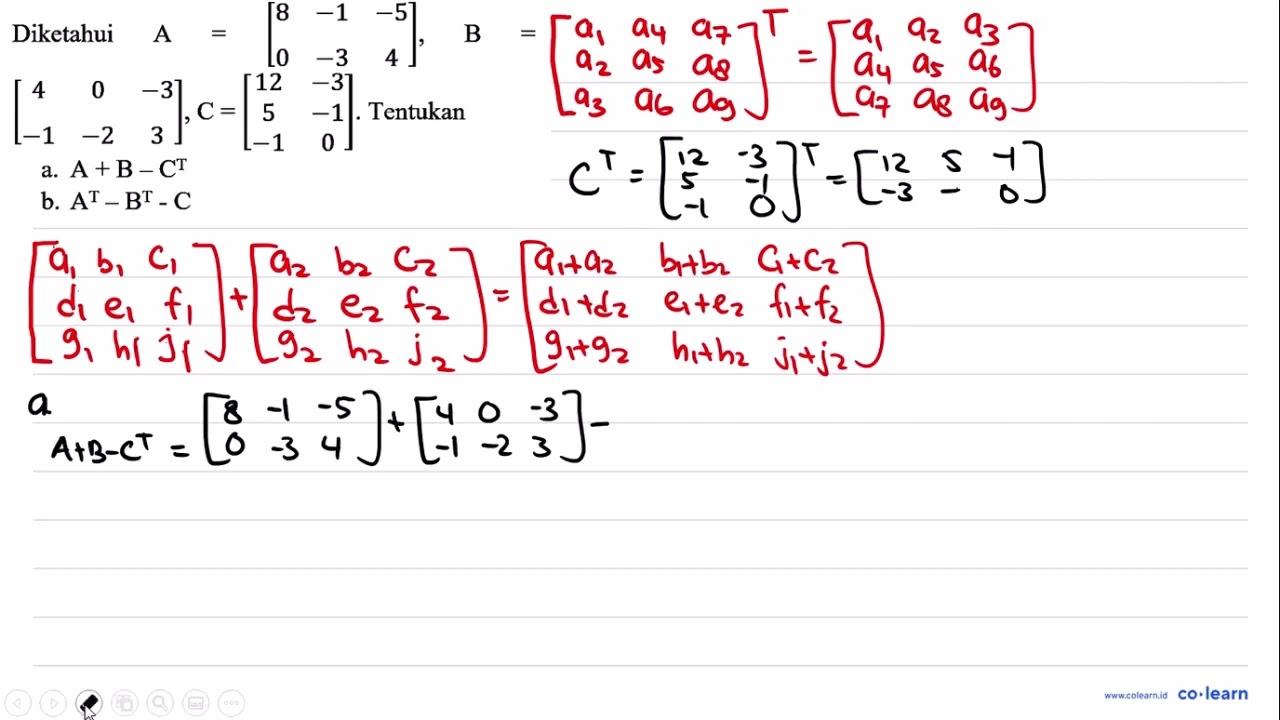 Diketahui A = [8 −1 −5
0 −3 4], B =
[4 0 −3
−1 −2 3], C = [12 −3
5 −1
−1 0]. Tentukan
a. A + B – Cᵀ
b. Aᵀ – Bᵀ - C
[a₁ a₄ a₇
a₂ a₅ a₈
a₃ a₆ a₉]ᵀ = [a₁ a₂ a₃
a₄ a₅ a₆
a₇ a₈ a₉]
Cᵀ = [12 -3
5 -1
-1 0]ᵀ = [12 5 -1
-3 - 0]
[a₁ b₁ c₁
d₁ e₁ f₁
g₁ h₁ j₁] + [a₂ b₂ c₂
d₂ e₂ f₂
g₂ h₂ j₂] = [a₁+a₂ b₁+b₂ c₁+c₂
d₁+d₂ e₁+e₂ f₁+f₂
g₁+g₂ h₁+h₂ j₁+j₂]
a
A+B-Cᵀ = [8 -1 -5
0 -3 4] + [4 0 -3
-1 -2 3] -
www.colearn.id co·learn